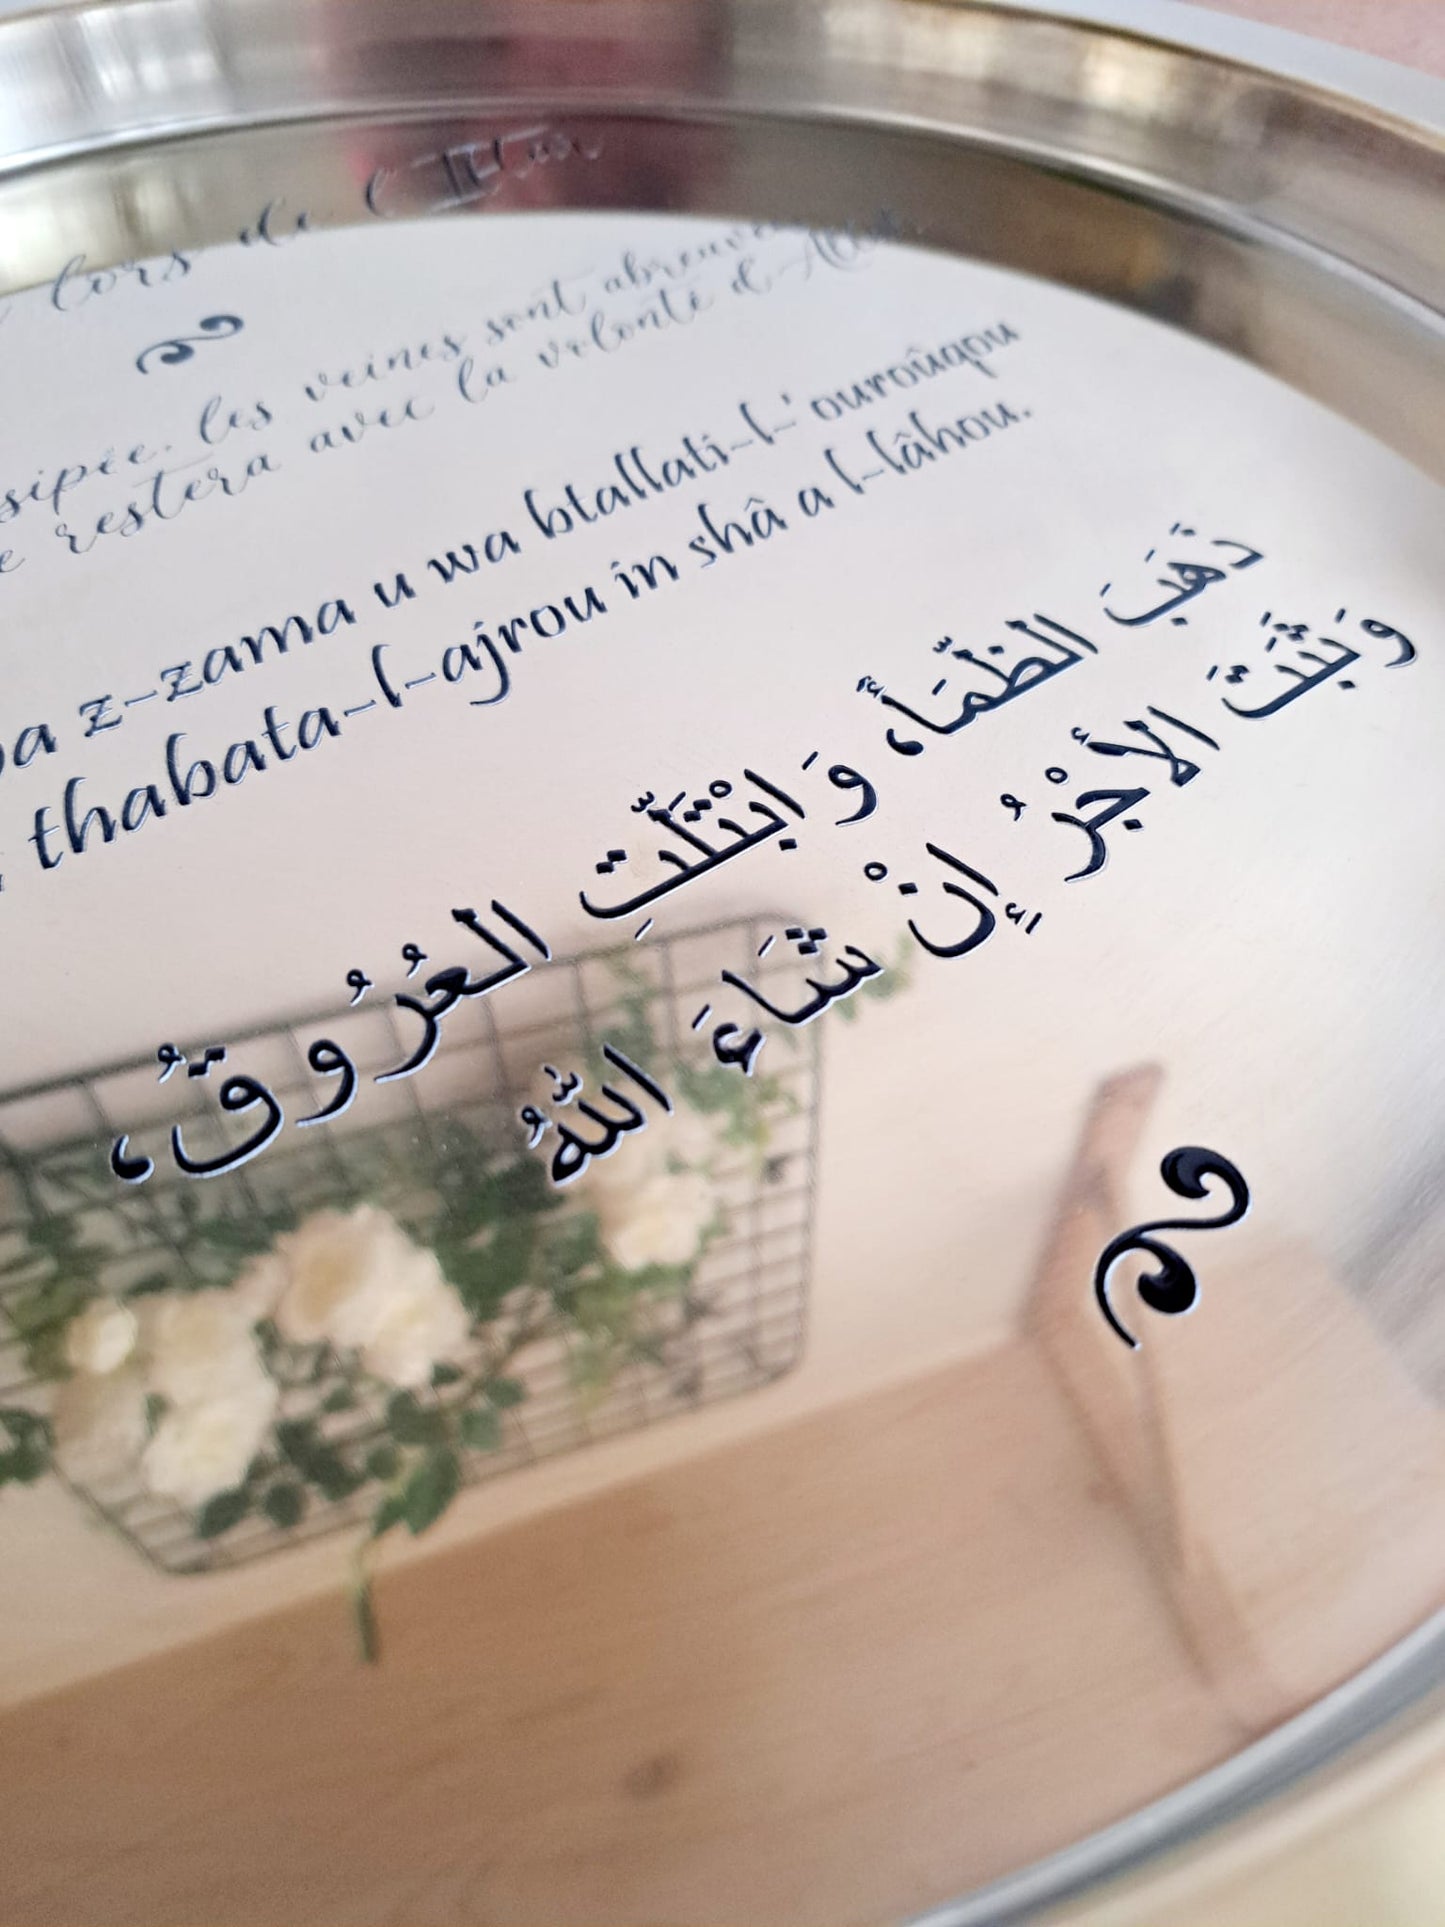 lors de l'Iftar
sipée, les veines sont abreuvées
restera avec la volonté d'Allah.
z-zama u wa btallati-l-'ouroûqou
thabata-l-ajrou in shâ a l-lâhou.
ذَهَبَ الظَّمَأُ، وَ ابْتَلَّتِ العُرُوقُ،
وَثَبَتَ الأَجْرُ إِنْ شَاءَ اللَّهُ